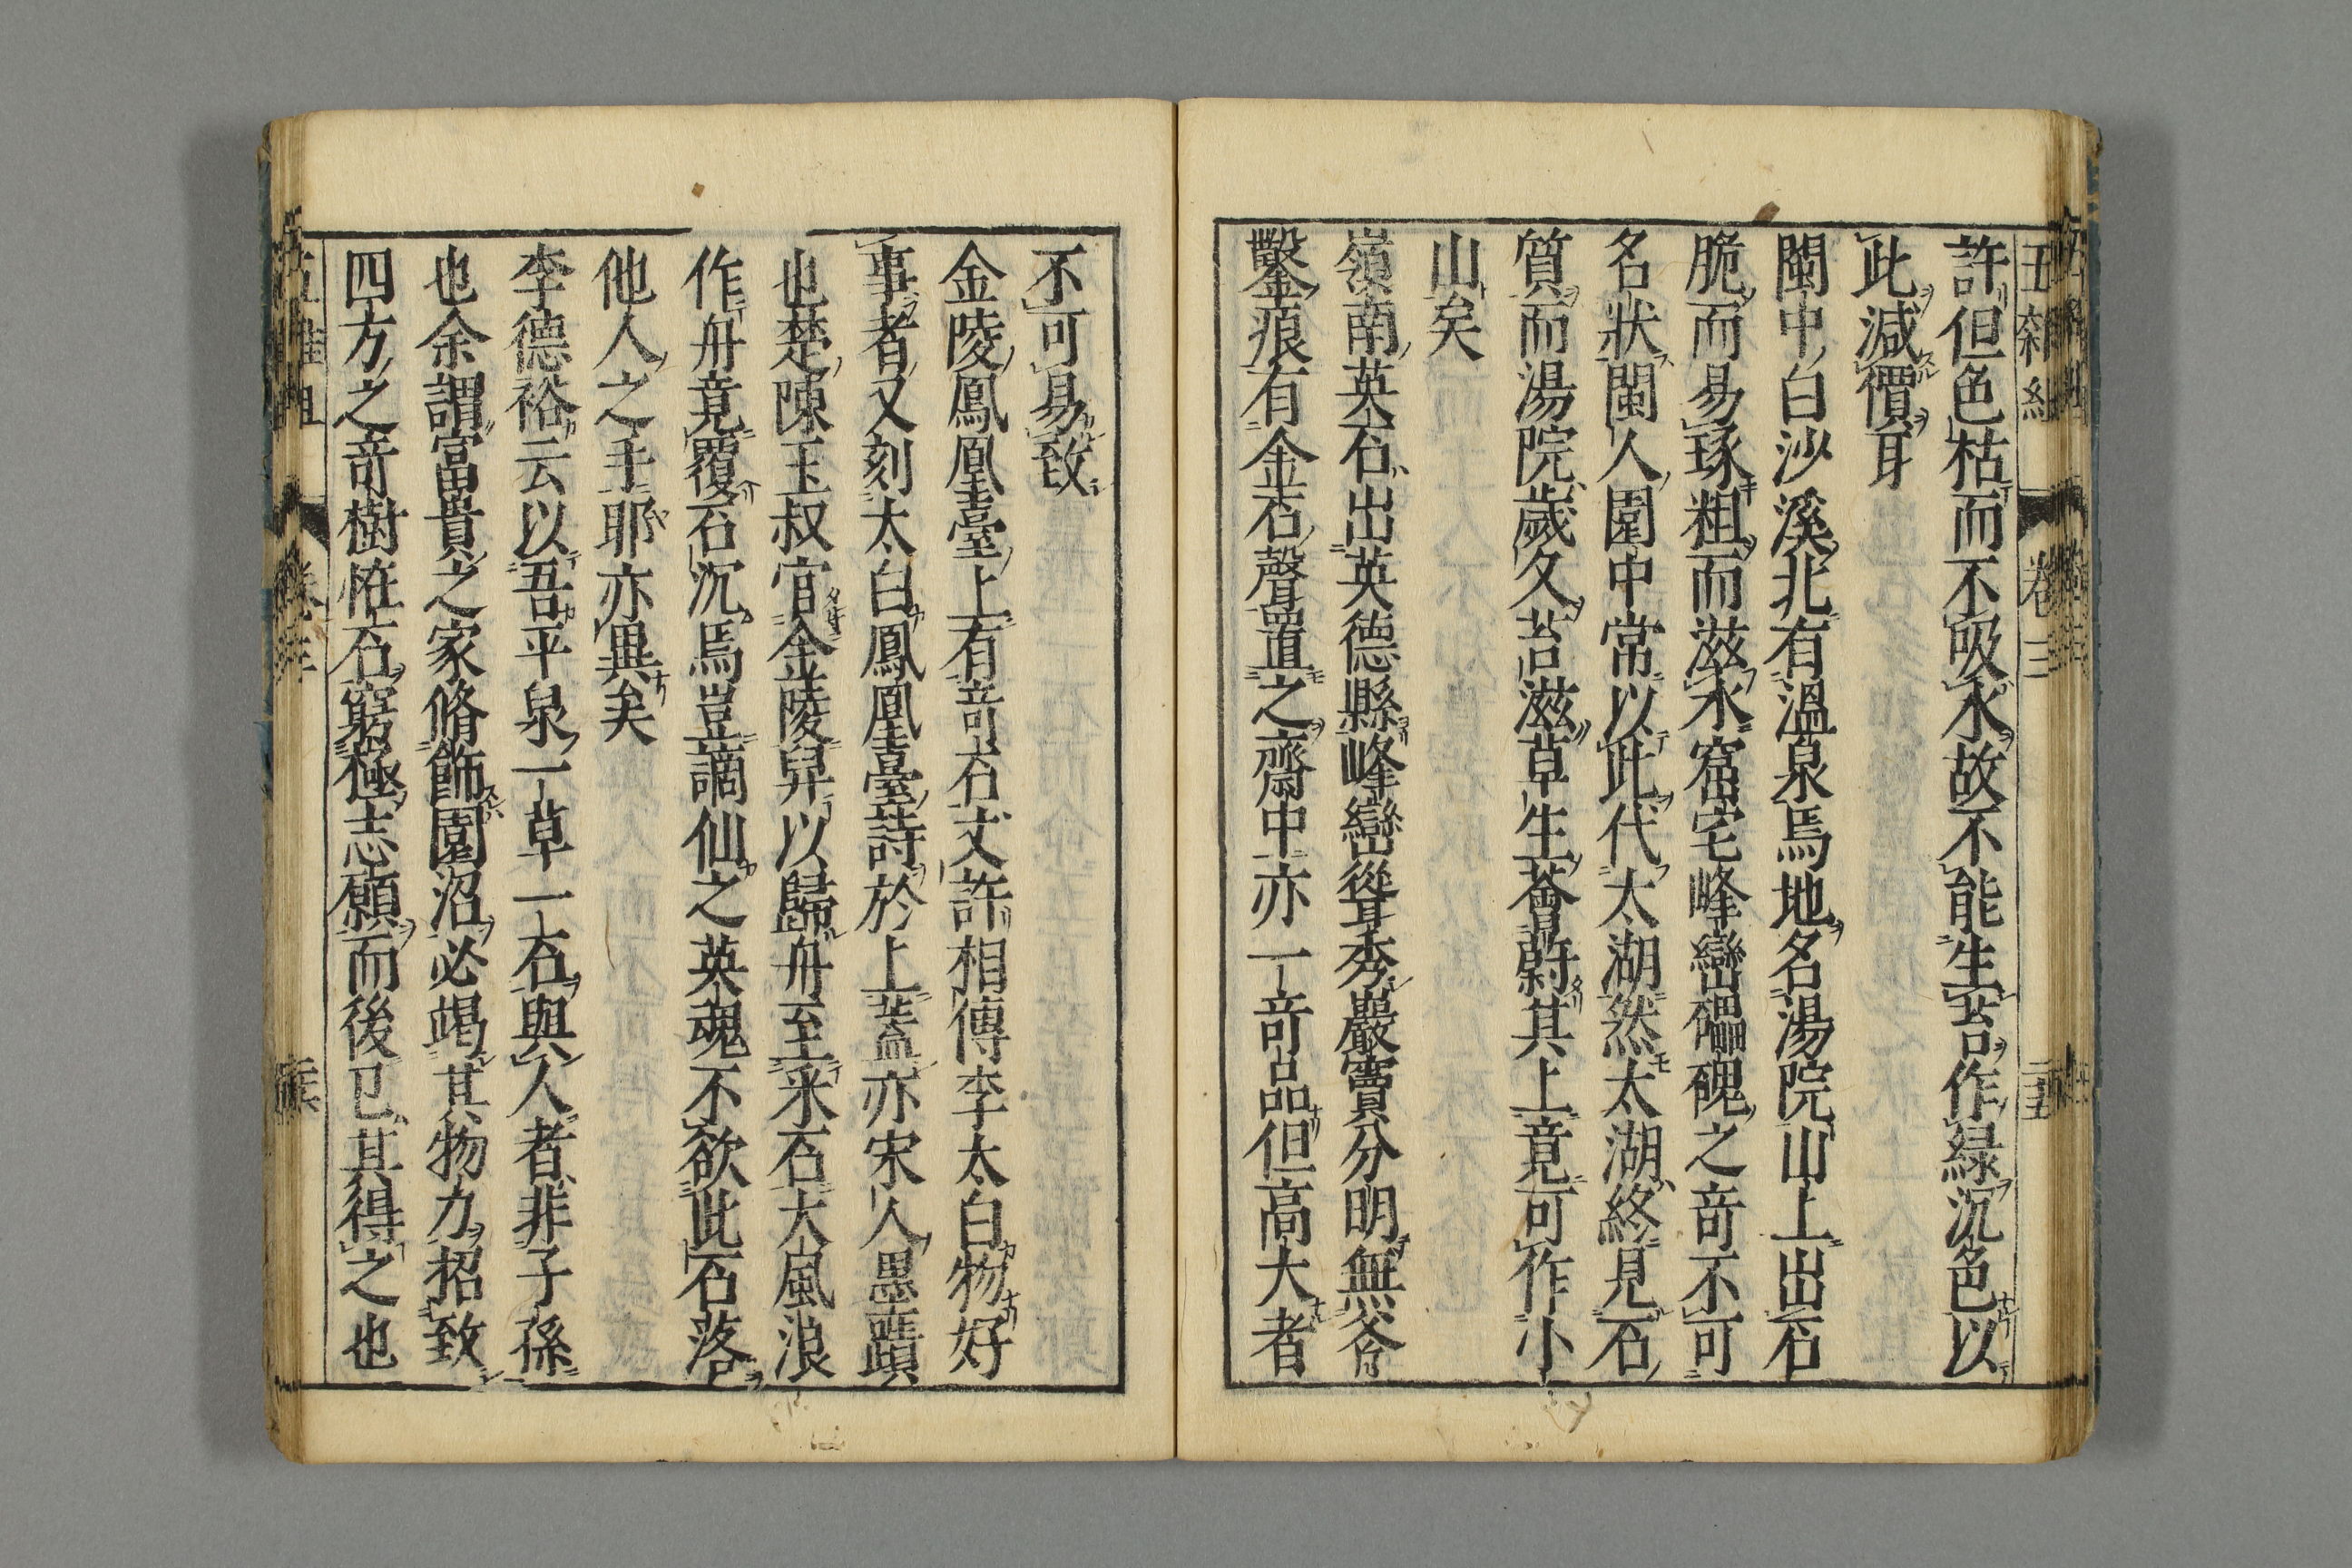 五雜組 卷三
許但色枯而不吸水故不能生苔作緑沉色以
此減價耳
閩中白沙溪北有溫泉焉地名湯院山上出石
脆而易琢粗而滋水窟宅峰巒礧磈之竒不可
名狀閩人園中常以此代太湖然太湖終見石
質而湯院歲久苔滋草生薈蔚其上竟可作小
山矣
嶺南英石出英德縣峰巒聳秀巖竇分明無斧
鑿痕有金石聲置之齋中亦一竒品但高大者
不可易致
金陵鳳凰臺上有竒石丈許相傳李太白物好
事者又刻太白鳳凰臺詩於上蓋亦宋人墨蹟
也楚陳玉叔官金陵舁以歸舟至采石大風浪
作舟竟覆石沉焉豈謫仙之英魂不欲此石落
他人之手耶亦異矣
李德裕云以吾平泉一草一石與人者非子孫
也余謂富貴之家脩飾園沼必竭其物力招致
四方之竒樹恠石窮極志願而後已其得之也